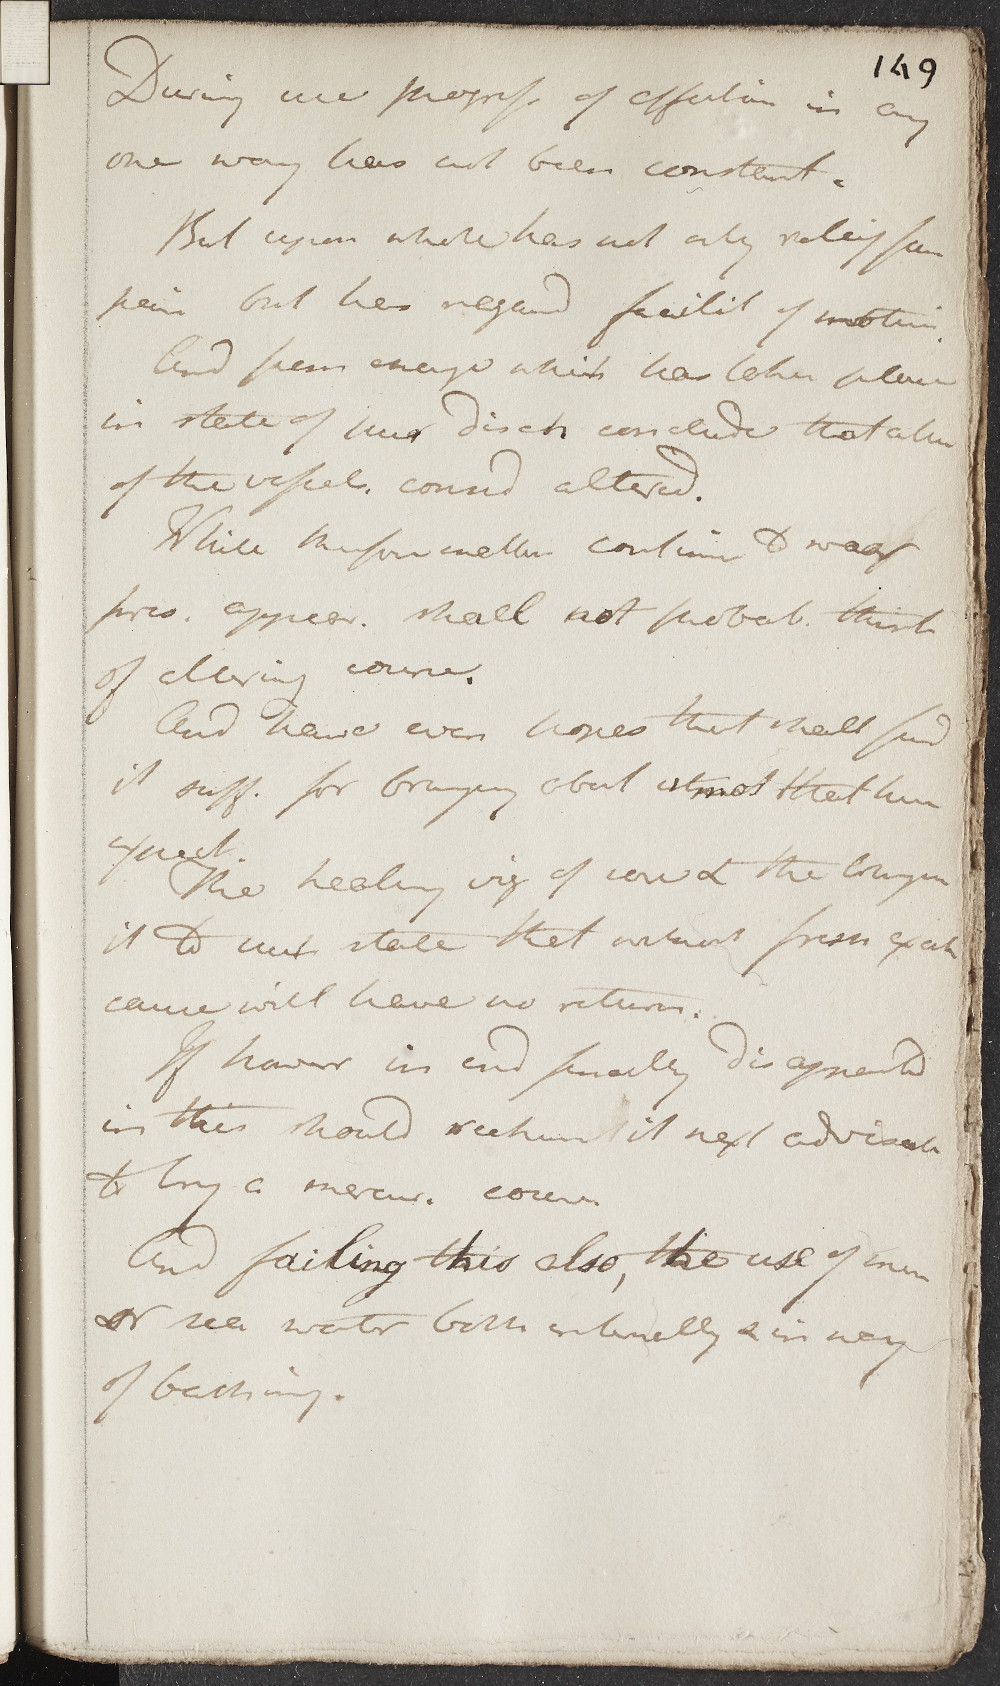 149
During use progress of affection in any
one way has not been constant.
But upon whole has not only relief from
pain but has regaind facilit of motion.
And from change which has taken place
in state of disch conclude that
of the vessels. consid altered.
While therefore matters continue to wear
pres. appear. shall not probab. think
of altering course.
And have even hopes that shall find
it suff. for bringing about utmost that can
expect.
The healing of & the bringing
it to such state that without fresh
cause will have no return.
If however in end finally disappointed
in this should it next advisab
to try a mercur. course
And failing this also, the use of
or sea water both internally & in way
of bathing.